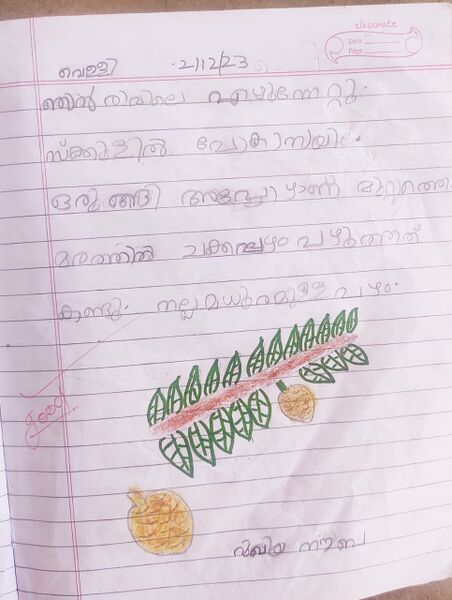 classmate
Date
Page
വെള്ളി 2/12/23
ഞാൻ രാവിലെ എഴുന്നേറ്റു.
സ്ക്കൂളിൽ പോകാനായി
ഒരുങ്ങി അപ്പോഴാണ് മുറ്റത്തെ
മരത്തിൽ ചക്കപ്പഴം പഴുത്തത്
കണ്ടു. നല്ല മധുരമുള്ള പഴം.
Good